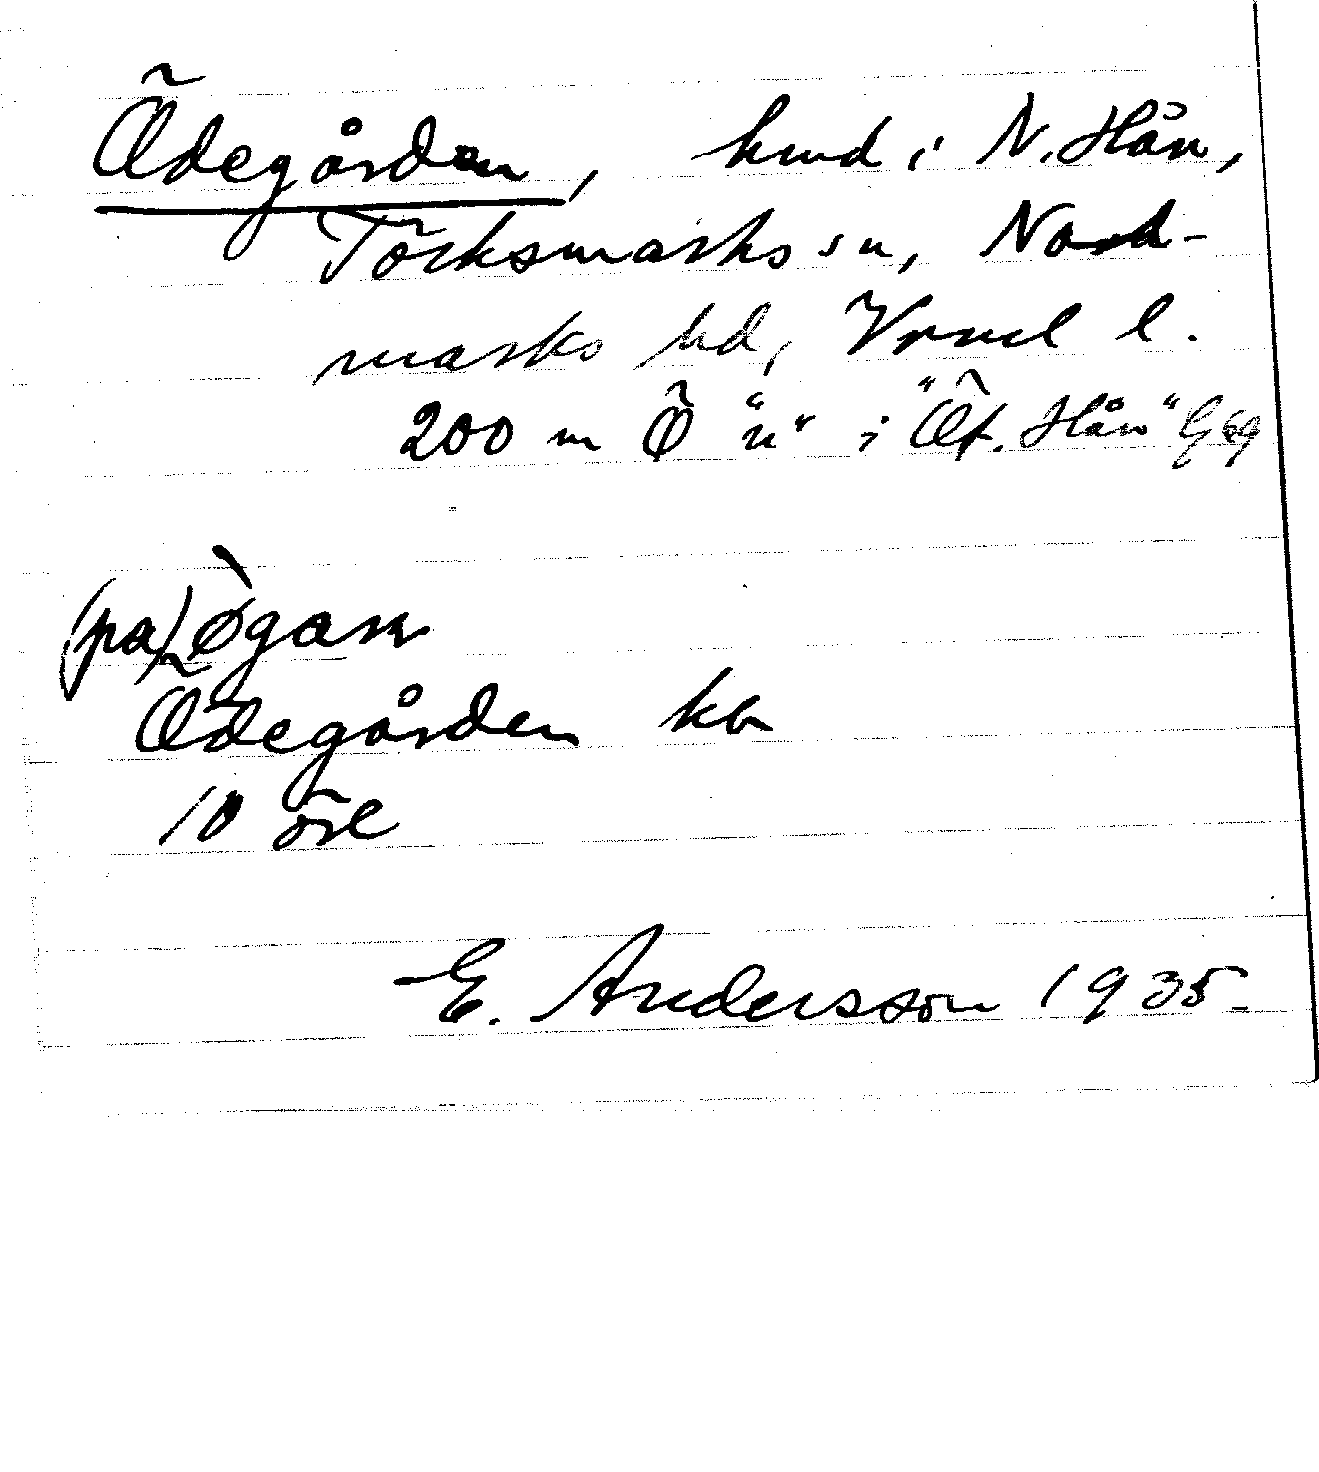 Ödegården, hmd i N. Hån,
Töcksmarks sn, Nord-
marks hd, Vrml l.
200 m Ö "n" i "Öf. Hån" G 69
(pa) ògaɳ
Ödegården kb
10 öre
E. Andersson 1935